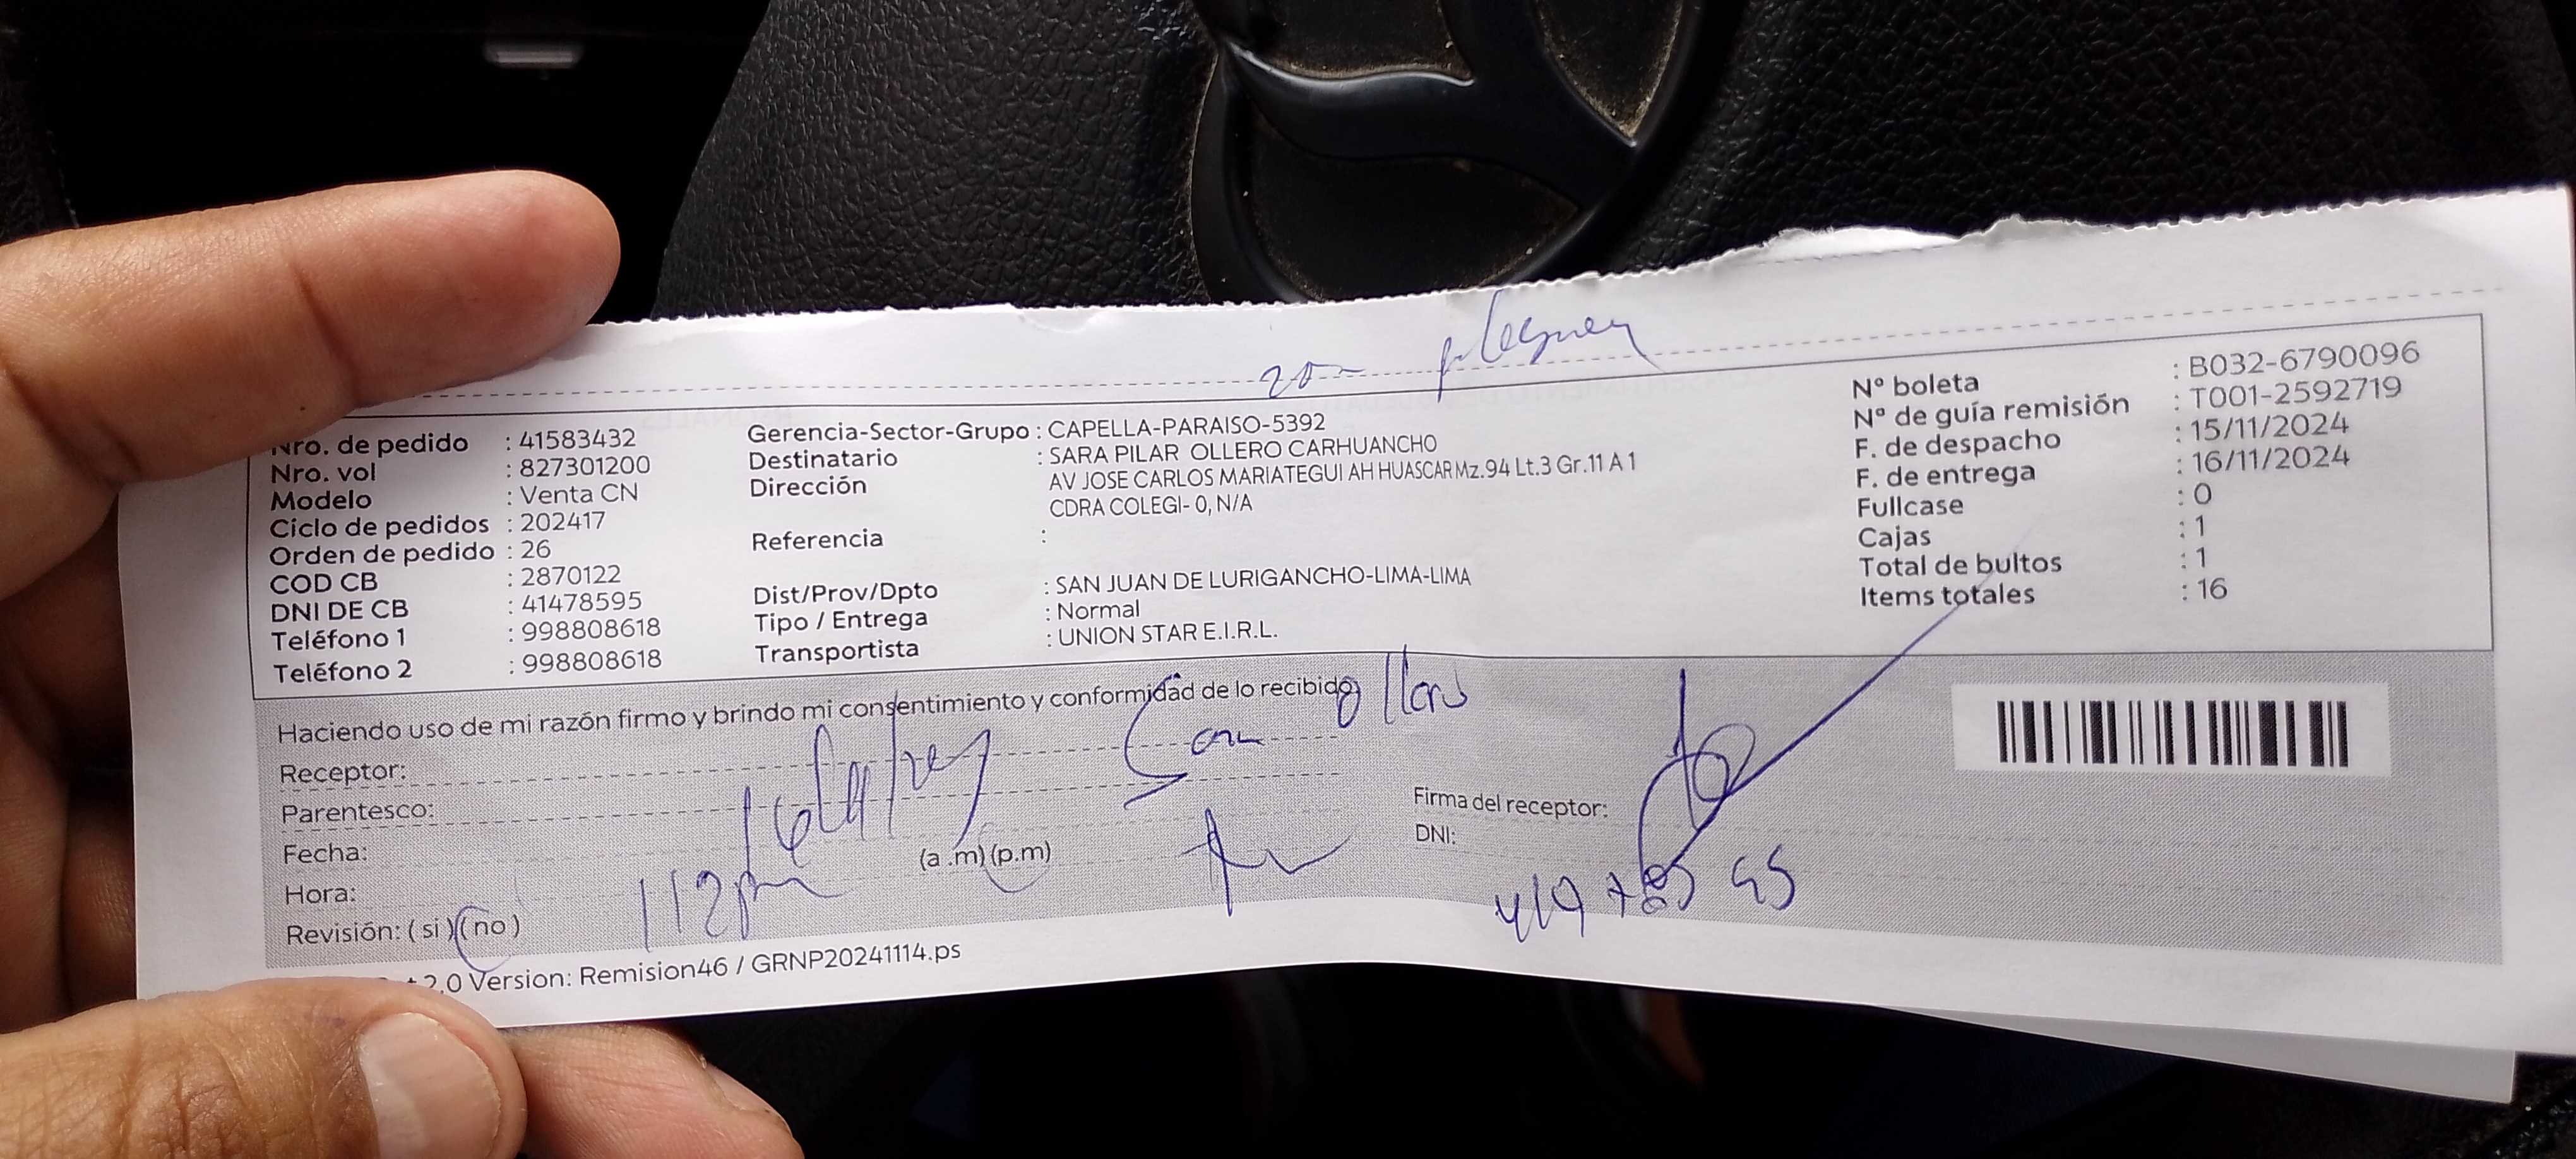 Nro. de pedido : 41583432
Nro. vol : 827301200
Modelo : Venta CN
Ciclo de pedidos : 202417
Orden de pedido : 26
COD CB : 2870122
DNI DE CB : 41478595
Teléfono 1 : 998808618
Teléfono 2 : 998808618
Gerencia-Sector-Grupo : CAPELLA-PARAISO-5392
Destinatario : SARA PILAR OLLERO CARHUANCHO
Dirección AV JOSE CARLOS MARIATEGUI AH HUASCAR Mz.94 Lt.3 Gr.11 A 1
CDRA COLEGI- 0, N/A
Referencia :
Dist/Prov/Dpto : SAN JUAN DE LURIGANCHO-LIMA-LIMA
Tipo / Entrega : Normal
Transportista : UNION STAR E.I.R.L.
N° boleta : B032-6790096
N° de guía remisión : T001-2592719
F. de despacho : 15/11/2024
F. de entrega : 16/11/2024
Fullcase : 0
Cajas : 1
Total de bultos : 1
Items totales : 16
Haciendo uso de mi razón firmo y brindo mi consentimiento y conformidad de lo recibido
Receptor:
Parentesco:
Fecha:
Hora: 112pm (a .m) (p.m)
Revisión: ( si ) ( no )
Firma del receptor:
DNI:
2.0 Version: Remision46 / GRNP20241114.ps